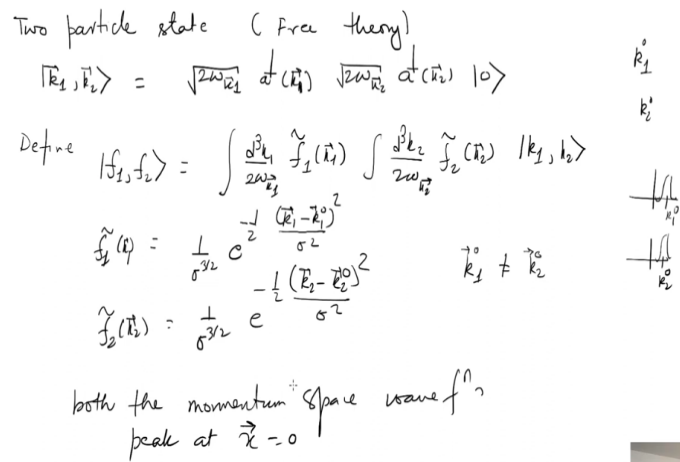 Two particle state (Free theory)
|k⃗₁, k⃗₂> = √2ω_k⃗₁ a†(k⃗₁) √2ω_k⃗₂ a†(k⃗₂) |0>
Define |f₁, f₂> = ∫ d³k₁/2ω_k⃗₁ f̃₁(k⃗₁) ∫ d³k₂/2ω_k⃗₂ f̃₂(k⃗₂) |k₁, k₂>
f̃₁(k⃗) = 1/σ^{3/2} e^{-1/2 (k⃗₁-k⃗₁⁰)²/σ²}
k⃗₁⁰ ≠ k⃗₂⁰
f̃₂(k⃗₂) = 1/σ^{3/2} e^{-1/2 (k⃗₂-k⃗₂⁰)²/σ²}
both the momentum space wave fⁿ
peak at x⃗ = 0
k₁⁰
k₂⁰
k₁⁰
k₂⁰